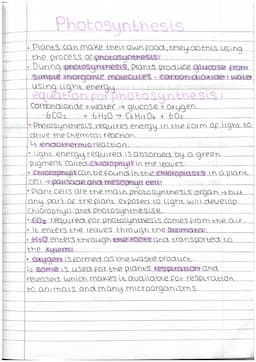 Photosynthesis
• Plants can make their own food, they do this using
the process of photosynthesis.
• During photosynthesis, plants produce glucose from
simple inorganic molecules - carbon dioxide + water
using light energy.
equation for photosynthesis:
carbon dioxide + water → glucose + oxygen.
6CO2 + 6H2O → C6H12O6 + 6O2
• Photosynthesis requires energy in the form of light to
drive the chemical reaction.
↳ endothermic reaction.
• light energy required is absorbed by a green
pigment called chlorophyll in the leaves.
• Chlorophyll can be found in the chloroplasts in a plant
cell → palisade and mesophyll cell.
• Plant cells are the main photosynthesis organ → but
any part of the plant exposed to light will develop
chlorophyll and photosynthesise.
• CO2 required for photosynthesis comes from the air.
• It enters the leaves through the stomata.
• H2O enters through the roots and transported to
the xylem.
• Oxygen is formed as the waste product.
↳ some is used for the plants respiration and
released which makes it available for respiration
to animals and many microorganisms.